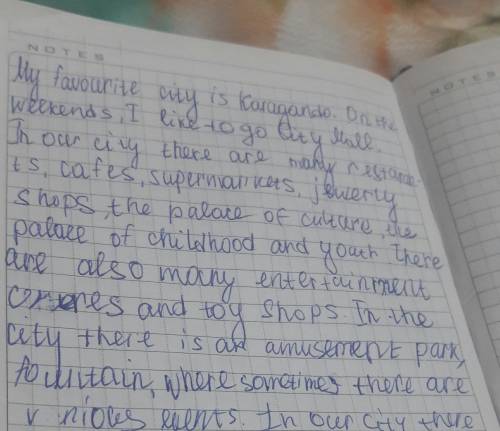 NOTES
NOTES
My favourite city is Karagando. On the
weekends, I like to go City Mall.
In our city there are many restaran-
ts, cafes, supermarkets, jewerty
shops, the palace of culture, the
palace of childhood and youth. There
are also many entertainment
and toy shops. In the
city there is an amusement park,
fountain, where sometimes there are
events. In our city there